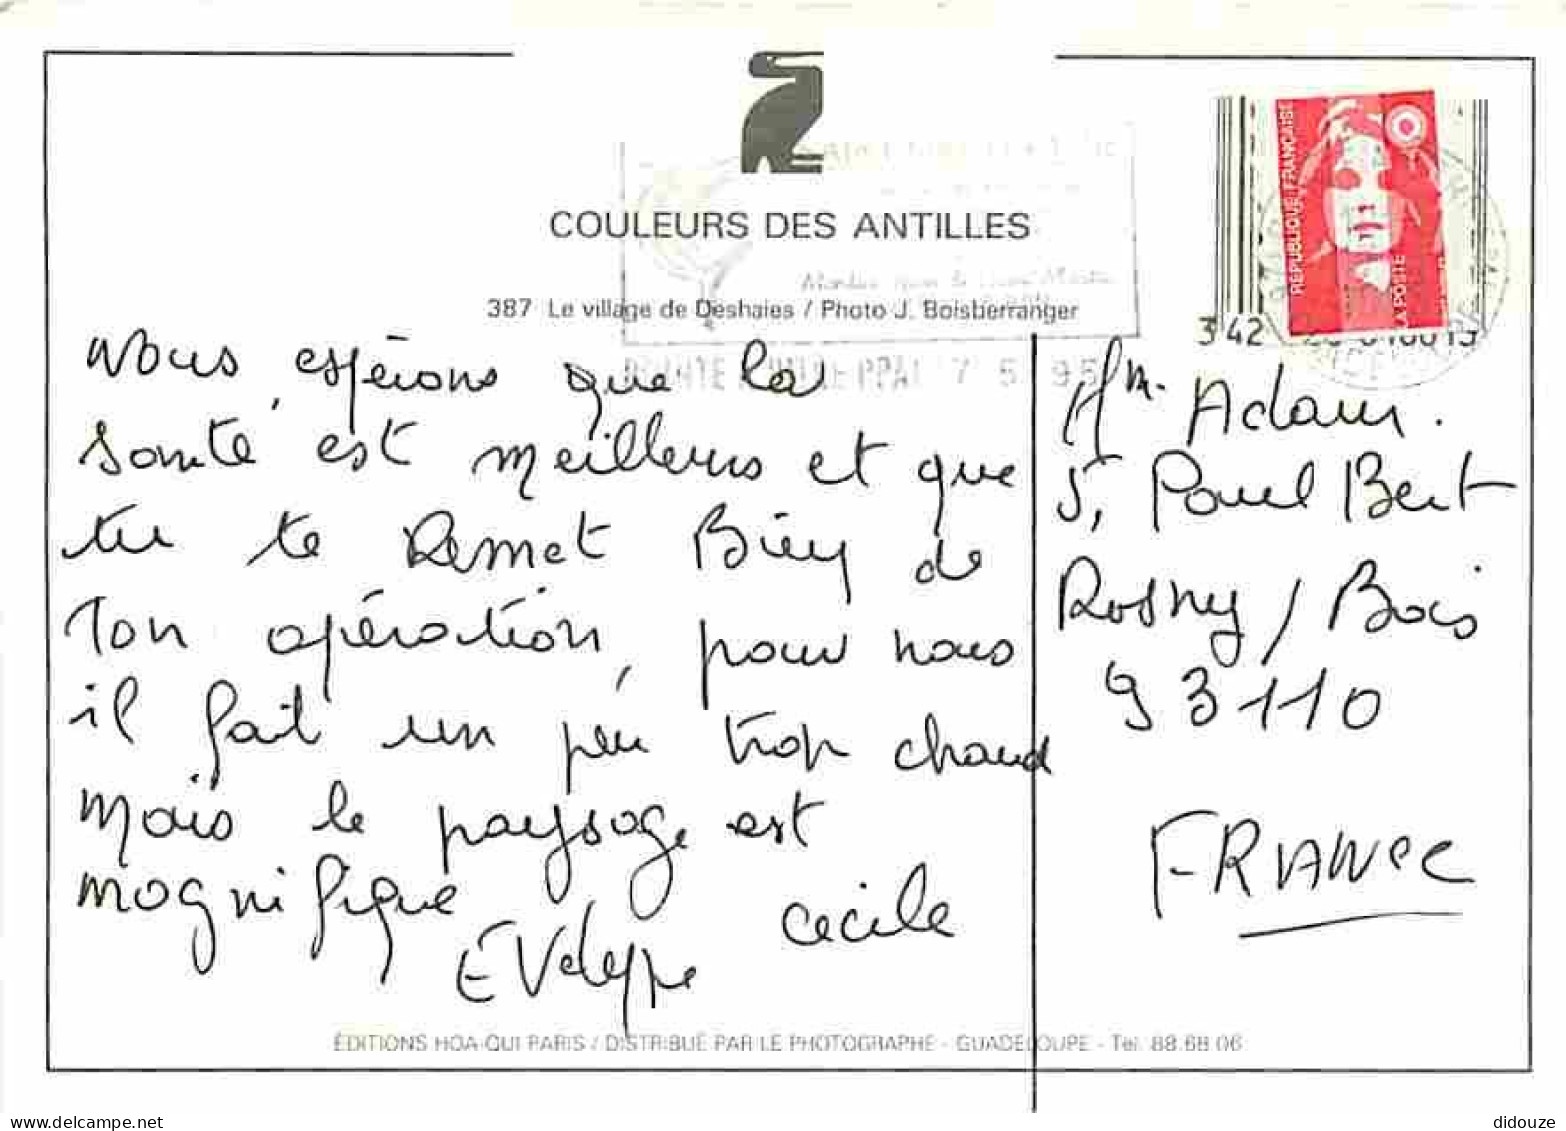 COULEURS DES ANTILLES
387 Le village de Deshaies / Photo J. Boisberranger
RÉPUBLIQUE FRANÇAISE
LA POSTE
7 5 95
3 42
Nous espérons que la
santé est meilleurs et que
tu te Remet Bien de
Ton opération, pour nous
il fait un peu trop chaud
Mais le paysage est
magnifique
Evelyne Cecile
Mm Adam.
5, Paul Bert
Rosny / Bois
93110
FRANCE
ÉDITIONS HOA-QUI PARIS / DISTRIBUÉ PAR LE PHOTOGRAPHE - GUADELOUPE - Tel. 88.68.06
delcampe.net
didouze